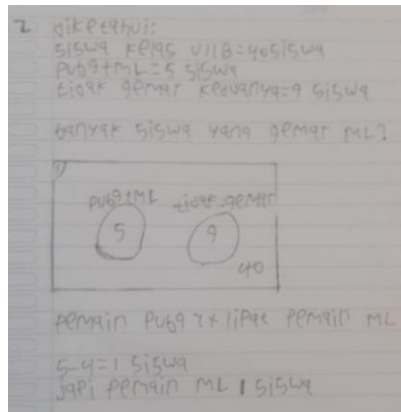 2 diketahui:
siswa kelas VIIB=40 siswa
pubg+ML=5 siswa
tidak gemar keduanya=9 siswa
banyak siswa yang gemar ML?
pubg+ML tidak gemar
5 9
40
pemain pubg 2x lipat pemain ML
5-4=1 siswa
jadi pemain ML 1 siswa